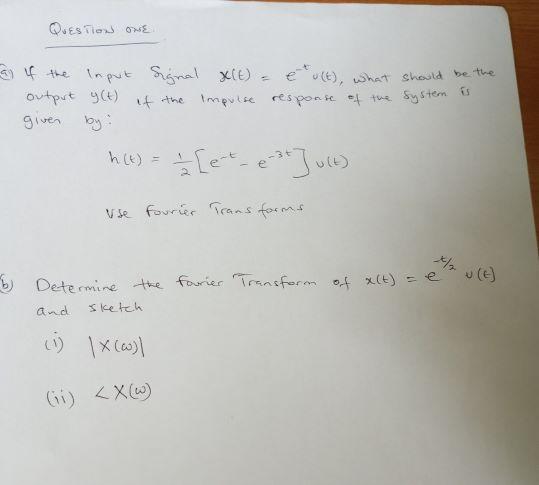 QUESTION ONE.
a) If the Input Signal x(t) = e^-t u(t), what should be the
output y(t) if the Impulse response of the system is
given by:
h(t) = 1/2 [e^-t - e^-3t] u(t)
Use Fourier Transforms
b) Determine the Fourier Transform of x(t) = e^-t/2 u(t)
and sketch
(i) |X(ω)|
(ii) <X(ω)